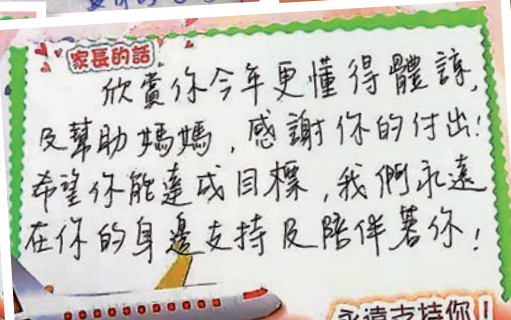 家長的話
欣賞你今年更懂得體諒,
及幫助媽媽,感謝你的付出!
希望你能達成目標,我們永遠
在你的身邊支持及陪伴著你!
永遠支持你!